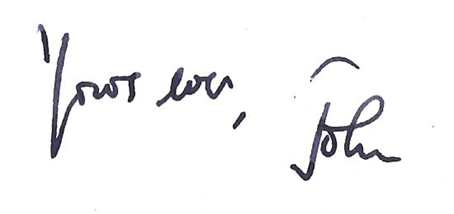 Yours ever, John